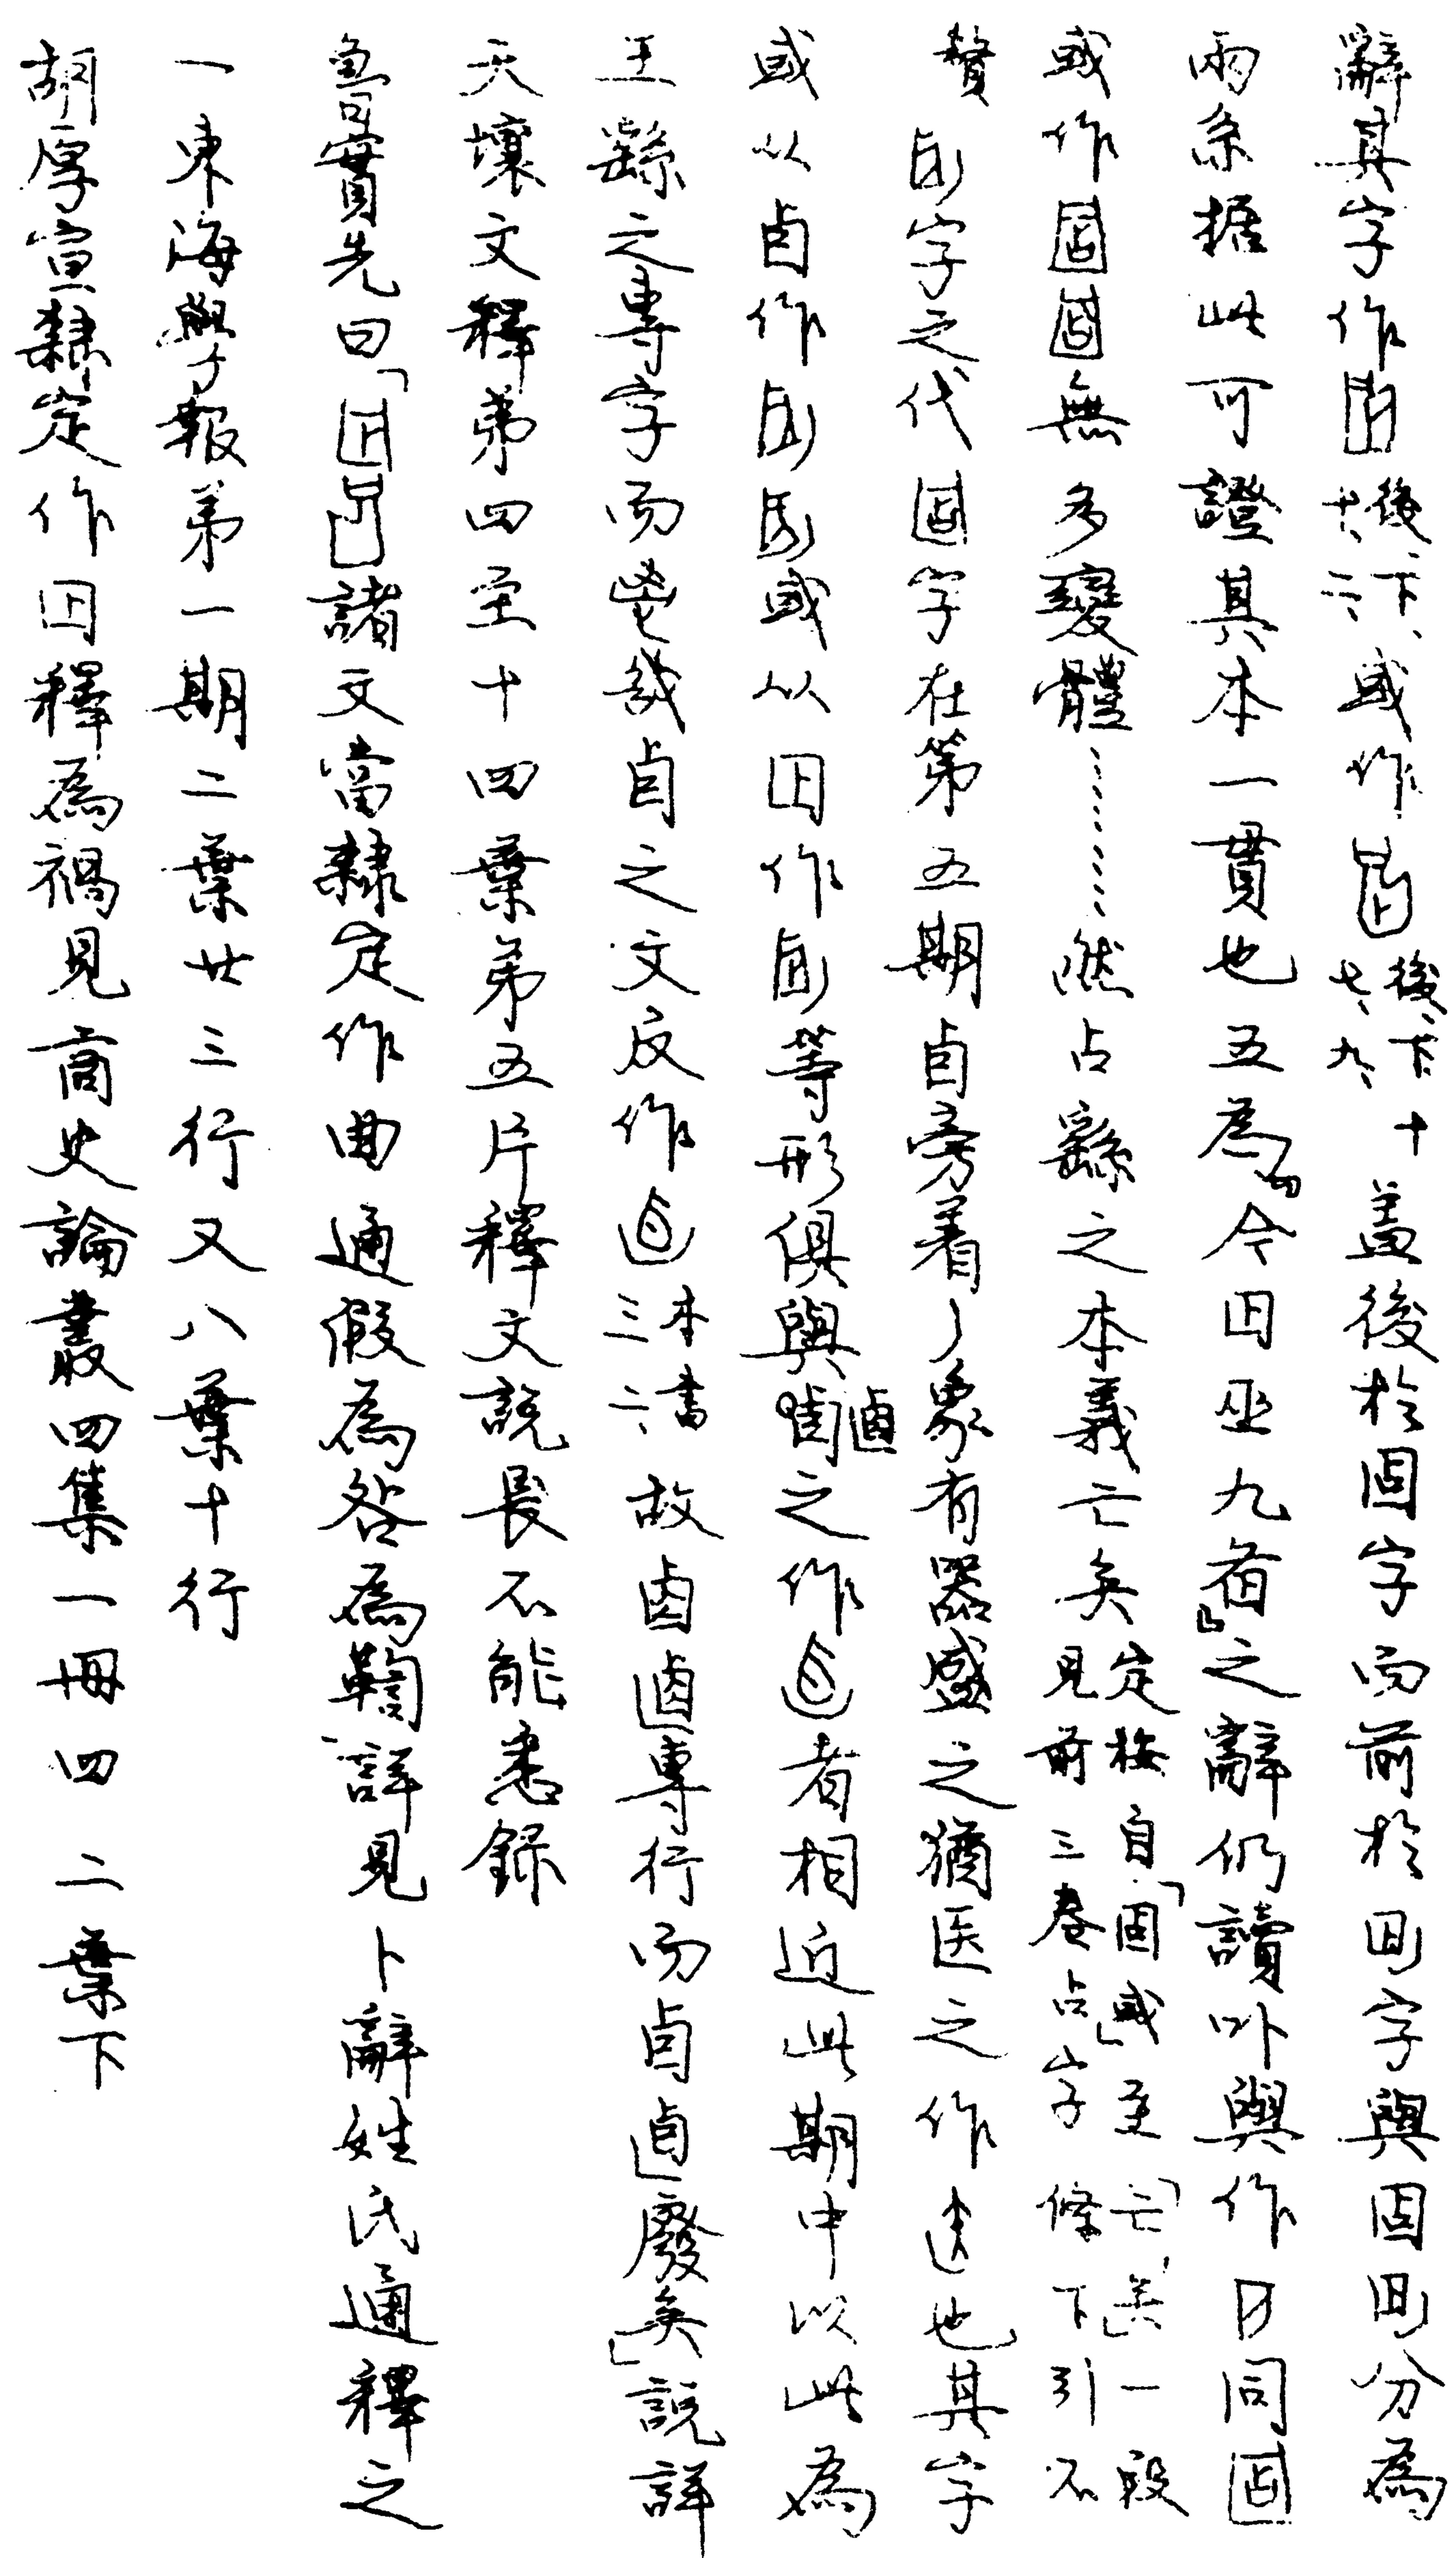 辭其字作後下、十、二、或作後、下、十七、九、蓋後於固字而前於字與固分爲
兩系據此可證其本一貫也五爲今囚巫九之辭仍讀卟與作同
或作無多變體……然占繇之本義亡矣定按自「固或」至「亡矣」一段見前三卷占字條下引不
贅字之代字在第五期卣旁着丿象有器盛之猶医之作也其字
或以卣作或以囚作等形俱與之作者相近此期中以此爲
王繇之專字而之文反作本書三二、故專行而廢矣」說詳
天壤文釋弟四至十四葉弟五片釋文說長不能悉錄
魯實先曰「囚諸文當隸定作曲通假爲咎爲鞫詳見卜辭姓氏通釋之
一東海學報弟一期二葉廿三行又八葉十行
胡厚宣隸定作囚釋爲禍見商史論叢四集一冊四二葉下